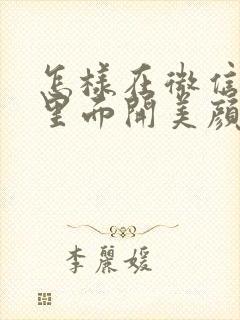 怎樣在微信
里面開美顔
李麗媛